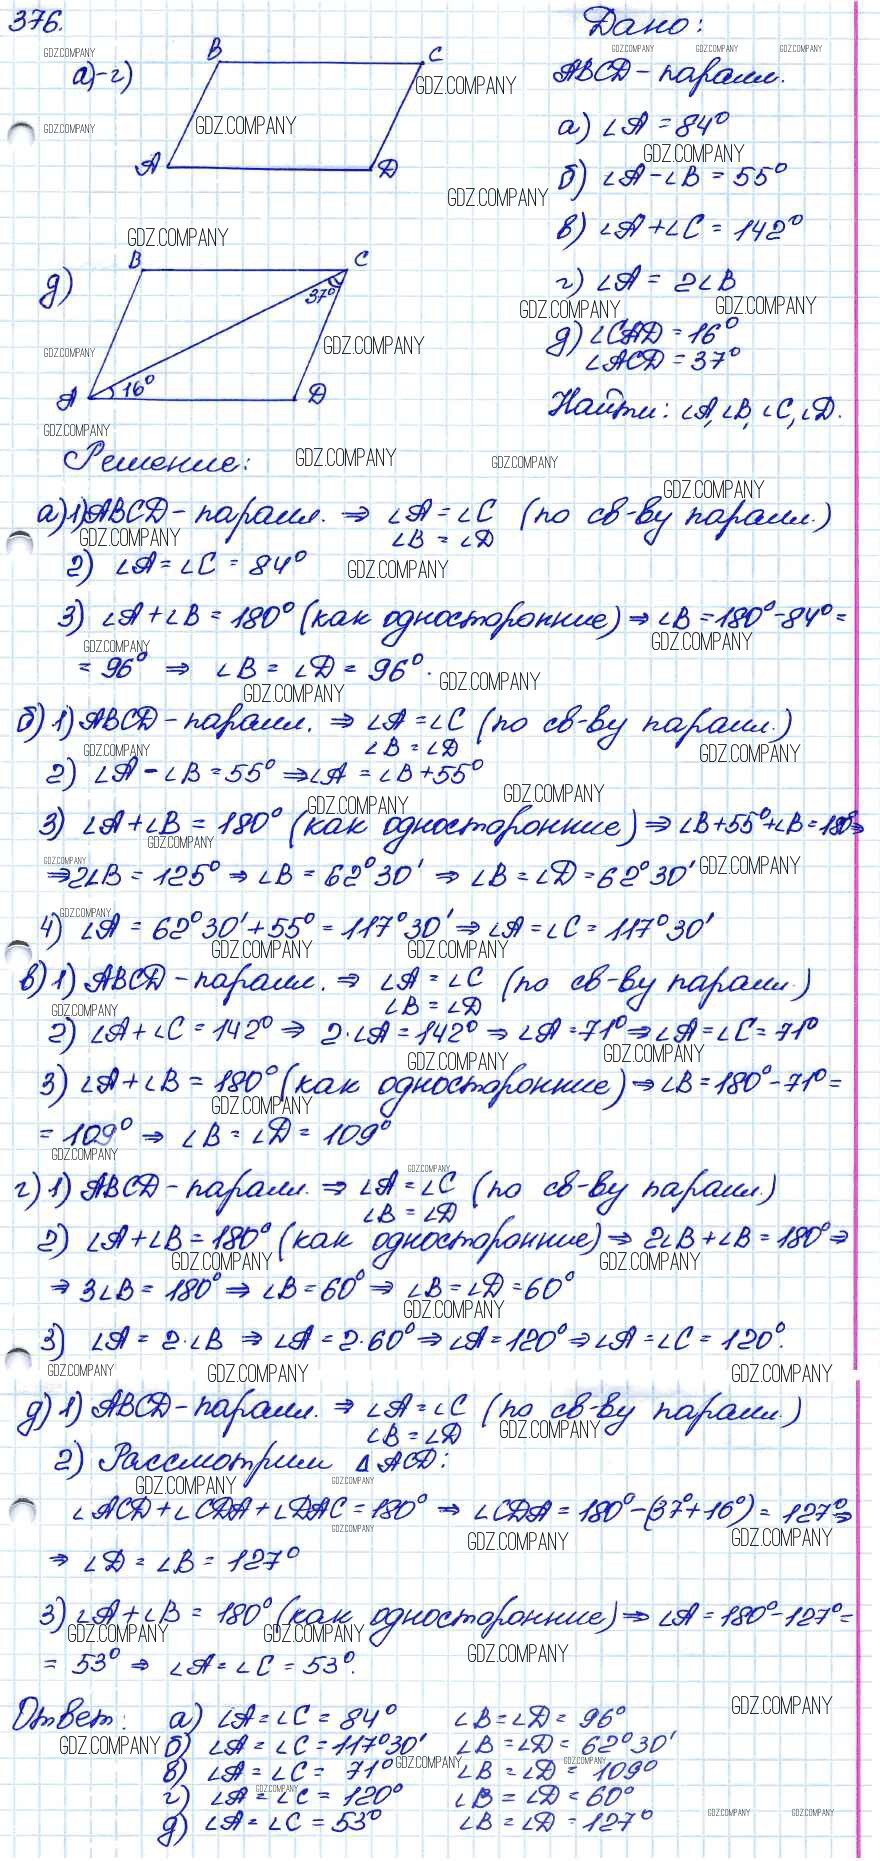 376.
Дано:
а)-г)
B
C
A
D
ABCD - паралл.
а) ∠A = 84°
б) ∠A - ∠B = 55°
в) ∠A + ∠C = 142°
г) ∠A = 2∠B
д) ∠CAD = 16°
∠ACD = 37°
Найти: ∠A, ∠B, ∠C, ∠D.
д)
B
C
37°
A
16°
D
Решение:
а) 1) ABCD - паралл. ⇒ ∠A = ∠C (по св-ву паралл.)
∠B = ∠D
2) ∠A = ∠C = 84°
3) ∠A + ∠B = 180° (как односторонние) ⇒ ∠B = 180° - 84° =
= 96° ⇒ ∠B = ∠D = 96°.
б) 1) ABCD - паралл. ⇒ ∠A = ∠C (по св-ву паралл.)
∠B = ∠D
2) ∠A - ∠B = 55° ⇒ ∠A = ∠B + 55°
3) ∠A + ∠B = 180° (как односторонние) ⇒ ∠B + 55° + ∠B = 180° ⇒
⇒ 2∠B = 125° ⇒ ∠B = 62°30' ⇒ ∠B = ∠D = 62°30'
4) ∠A = 62°30' + 55° = 117°30' ⇒ ∠A = ∠C = 117°30'
в) 1) ABCD - паралл. ⇒ ∠A = ∠C (по св-ву паралл.)
∠B = ∠D
2) ∠A + ∠C = 142° ⇒ 2·∠A = 142° ⇒ ∠A = 71° ⇒ ∠A = ∠C = 71°
3) ∠A + ∠B = 180° (как односторонние) ⇒ ∠B = 180° - 71° =
= 109° ⇒ ∠B = ∠D = 109°
г) 1) ABCD - паралл. ⇒ ∠A = ∠C (по св-ву паралл.)
∠B = ∠D
2) ∠A + ∠B = 180° (как односторонние) ⇒ 2∠B + ∠B = 180° ⇒
⇒ 3∠B = 180° ⇒ ∠B = 60° ⇒ ∠B = ∠D = 60°
3) ∠A = 2·∠B ⇒ ∠A = 2·60° ⇒ ∠A = 120° ⇒ ∠A = ∠C = 120°.
д) 1) ABCD - паралл. ⇒ ∠A = ∠C (по св-ву паралл.)
∠B = ∠D
2) Рассмотрим △ACD:
∠ACD + ∠CDA + ∠DAC = 180° ⇒ ∠CDA = 180° - (37° + 16°) = 127° ⇒
⇒ ∠D = ∠B = 127°
3) ∠A + ∠B = 180° (как односторонние) ⇒ ∠A = 180° - 127° =
= 53° ⇒ ∠A = ∠C = 53°.
Ответ: а) ∠A = ∠C = 84° ∠B = ∠D = 96°
б) ∠A = ∠C = 117°30' ∠B = ∠D = 62°30'
в) ∠A = ∠C = 71° ∠B = ∠D = 109°
г) ∠A = ∠C = 120° ∠B = ∠D = 60°
д) ∠A = ∠C = 53° ∠B = ∠D = 127°
GDZ.COMPANY